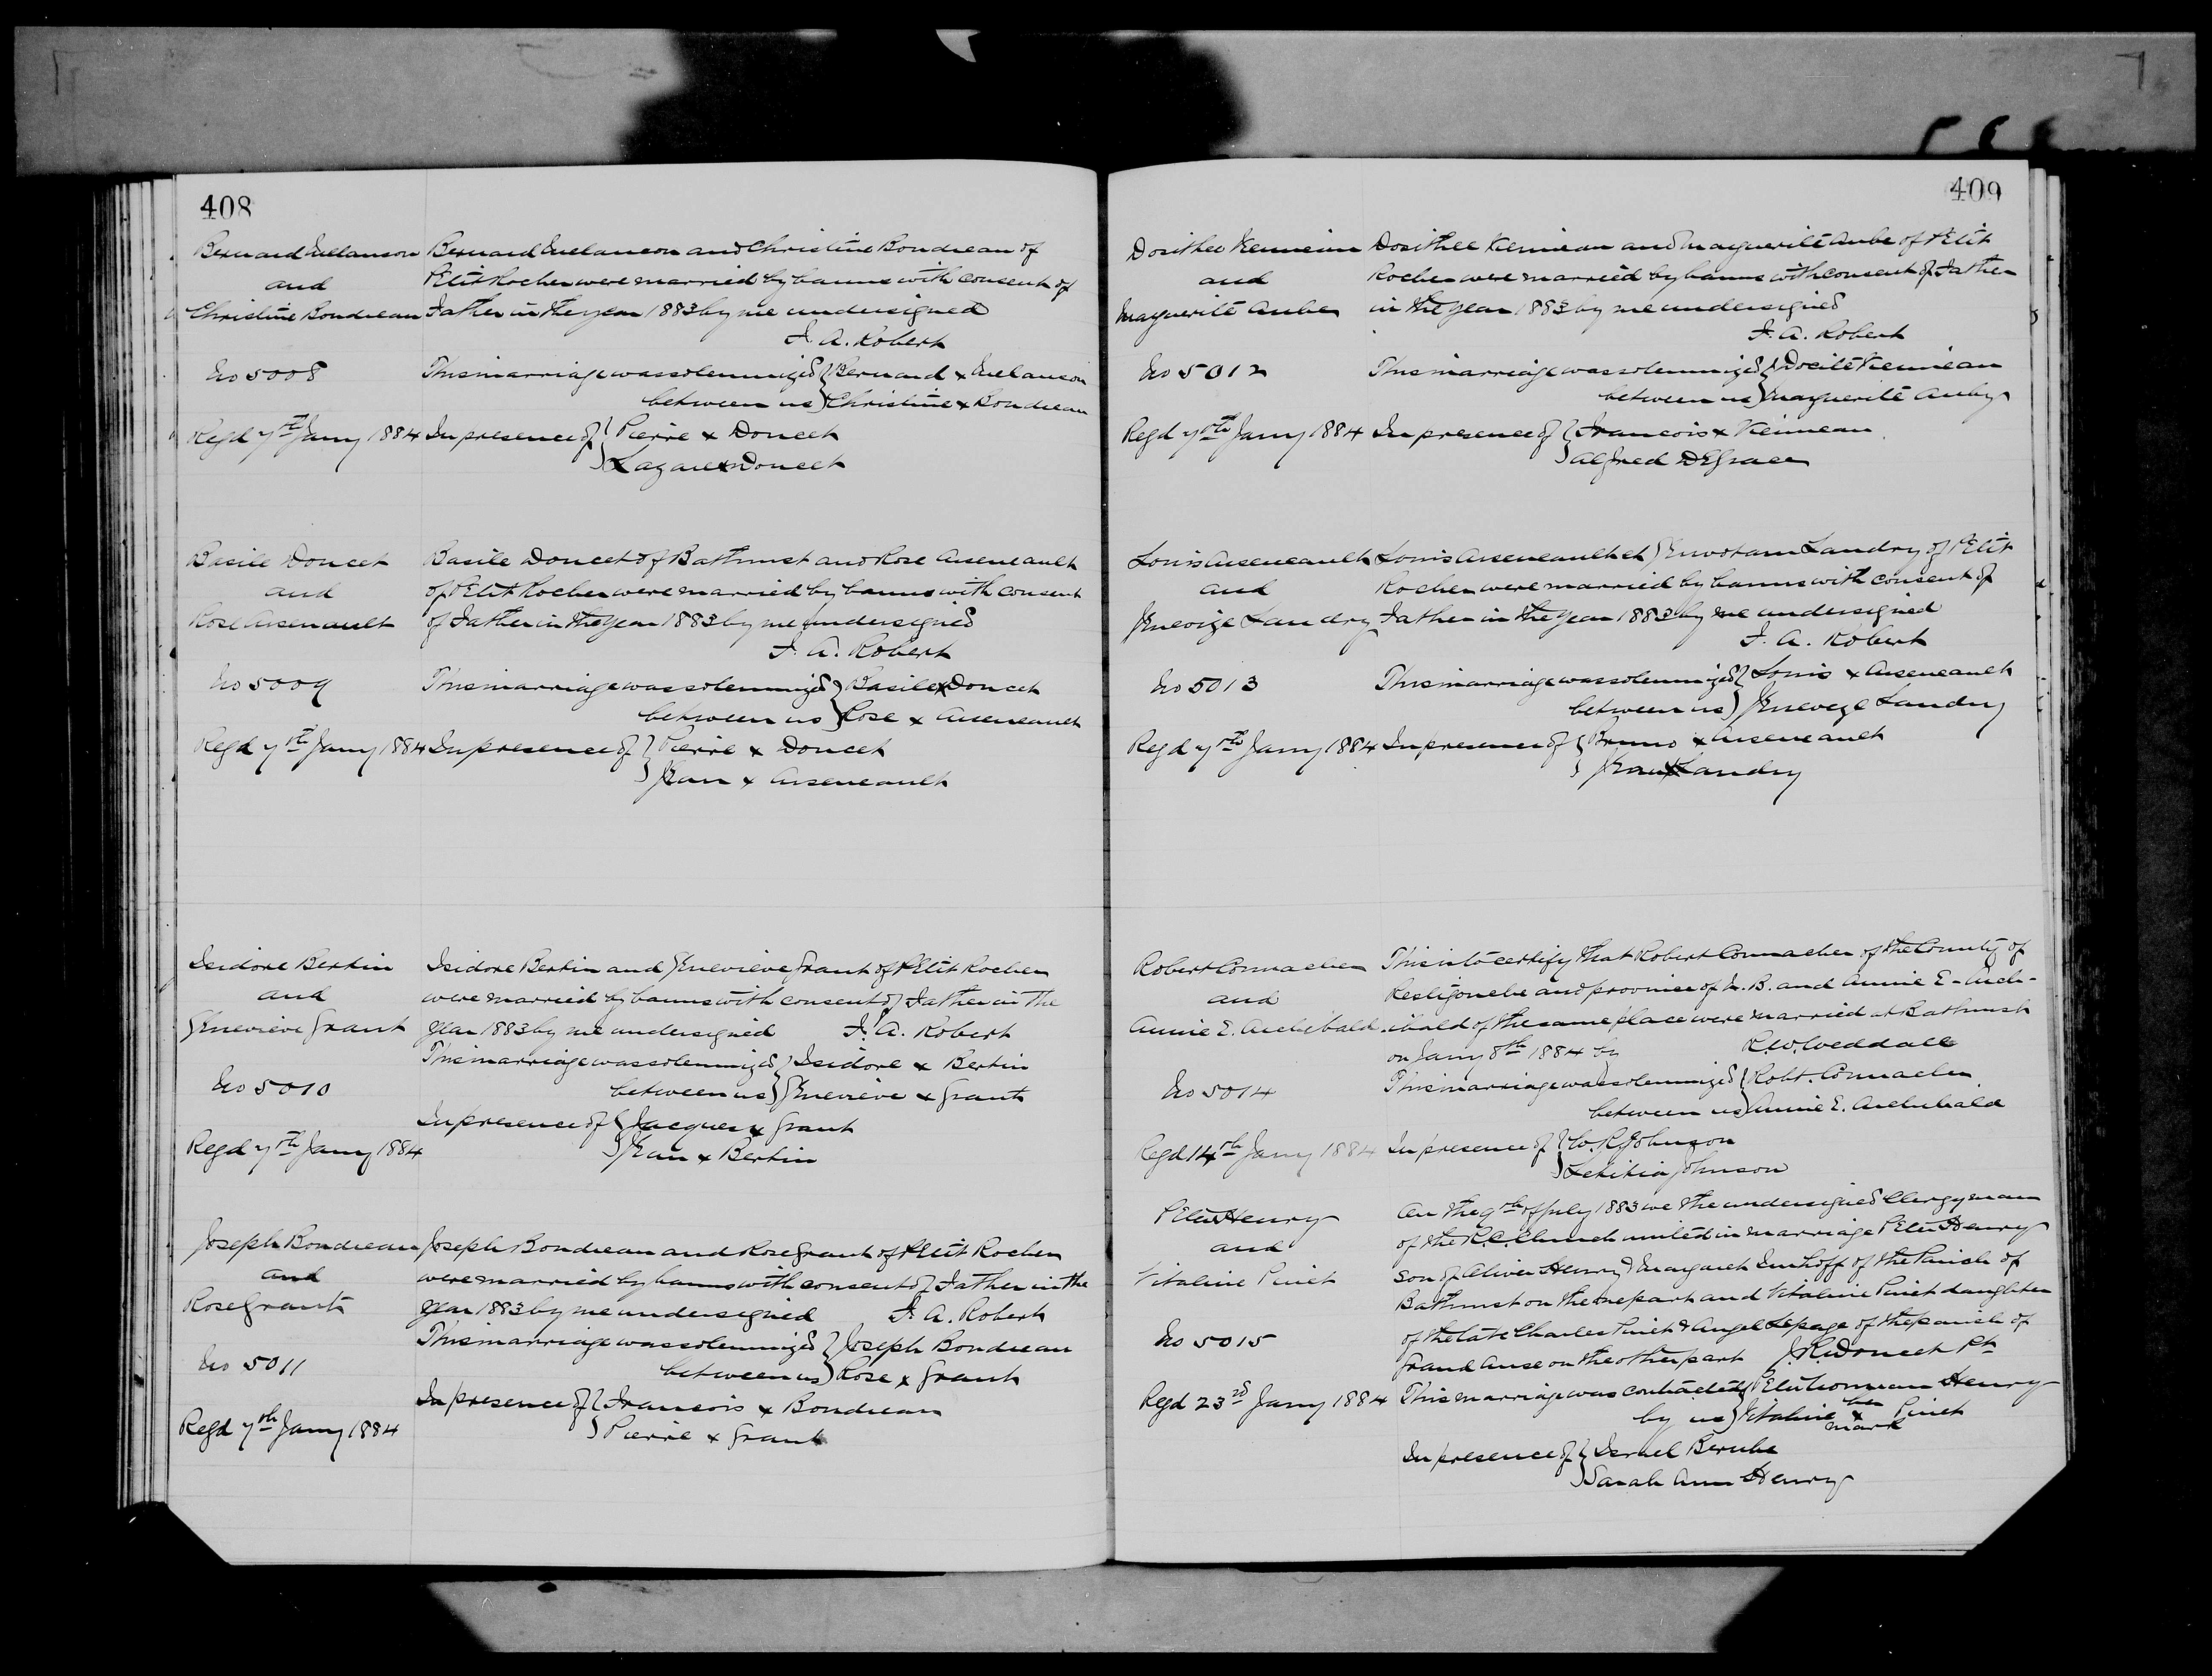 408
Bernard Melanson
and
Christine Boudreau
No 5008
Regd 7th Jany 1884
Bernard Melanson and Christine Boudreau of
Petit Rocher were married by banns with consent of
Father in the year 1883 by me undersigned
F. A. Robert
This marriage was solemnized } Bernard x Melanson
between us } Christine x Boudreau
In presence of } Pierre x Doucet
} Lazare x Doucet
Basile Doucet
and
Rose Arsenault
No 5009
Regd 7th Jany 1884
Basile Doucet of Bathurst and Rose Arseneault
of Petit Rocher were married by banns with consent
of Father in the year 1883 by me undersigned
F. A. Robert
This marriage was solemnized } Basile x Doucet
between us } Rose x Arseneault
In presence of } Pierre x Doucet
} Jean x Arseneault
Isidore Bertin
and
Genevieve Grant
No 5010
Regd 7th Jany 1884
Isidore Bertin and Genevieve Grant of Petit Rocher
were married by banns with consent of Father in the
year 1883 by me undersigned F. A. Robert
This marriage was solemnized } Isidore x Bertin
between us } Genevieve x Grant
In presence of { Jacques x Grant
} Jean x Bertin
Joseph Boudreau
and
Rose Grant
No 5011
Regd 7th Jany 1884
Joseph Boudreau and Rose Grant of Petit Rocher
were married by banns with consent of Father in the
year 1883 by me undersigned F. A. Robert
This marriage was solemnized } Joseph Boudreau
between us } Rose x Grant
In presence of { Francois x Boudreau
} Pierre x Grant
409
Dosithee
and
Marguerite Aube
No 5012
Regd 7th Jany 1884
Dosithee and Marguerite Aube of Petit
Rocher were married by banns with consent of Father
in the year 1883 by me undersigned
F. A. Robert
This marriage was solemnized {
between us } Marguerite Auby
In presence of { Francois x
} Alfred DeGrace
Louis Arseneault
and
Landry
No 5013
Regd 7th Jany 1884
Louis Arseneault et Landry of Petit
Rocher were married by banns with consent of
Father in the year 1883 by me undersigned
F. A. Robert
This marriage was solemnized { Louis x Arseneault
between us } Landry
In presence of { Bruno x Arseneault
} Jean x Landry
Robert Connacher
and
Annie E. Archibald
No 5014
Regd 14th Jany 1884
This is to certify that Robert Connacher of the County of
Restigouche and province of N. B. and Annie E. Arch-
ibald of the same place were married at Bathurst
on Jany 8th 1884 by R. W. Weddall
This marriage was solemnized { Robt. Connacher
between us } Annie E. Archibald
In presence of { W. R. Johnson
} Letitia Johnson
Peter Henry
and
Vitaline Pinet
No 5015
Regd 23rd Jany 1884
On the 9th of July 1883 we the undersigned Clergyman
of the R. C. Church united in marriage Peter Henry
son of Oliver Henry & Margaret Imhoff of the Parish of
Bathurst on the one part and Vitaline Pinet daughter
of the late Charles Pinet & Angel Lepage of the parish of
Grand Anse on the other part J. R. Doucet Pt
This marriage was contracted { Henry
by us } Vitaline her x mark Pinet
In presence of { Israel Berube
} Sarah Ann Henry